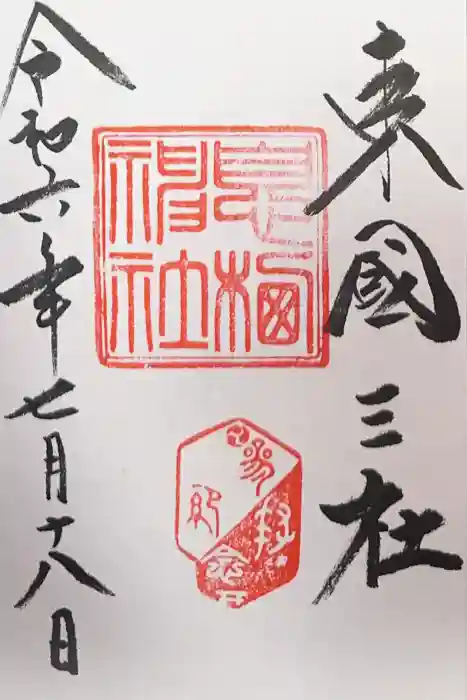 東國三社
息栖
神社
令和六年七月十八日